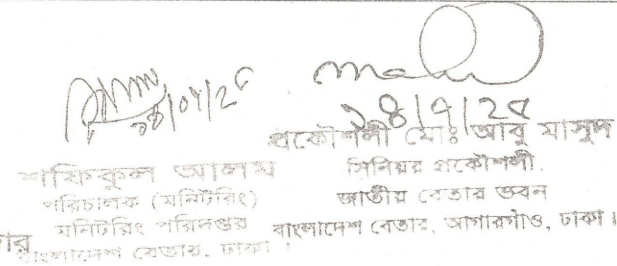 ২৪/৭/২৫
শফিকুল আলম
পরিচালক (মনিটরিং)
মনিটরিং পরিদপ্তর
বাংলাদেশ বেতার, ঢাকা।
প্রকৌশলী মোঃ আবু মাসুদ
সিনিয়র প্রকৌশলী.
জাতীয় বেতার ভবন
বাংলাদেশ বেতার, আগারগাঁও, ঢাকা।